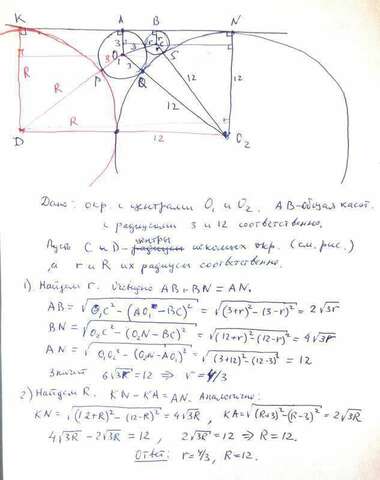 K A B N
3 r r c
R 3 O₁ r S
R 8 1 3 12 12
P Q
R 12
D 12 O₂
Дано: окр. с центрами O₁ и O₂. AB - общая касат.
с радиусами 3 и 12 соответственно.
центры
Пусть C и D - радиусы искомых окр. (см. рис.)
, а r и R их радиусы соответственно.
1) Найдем r. Очевидно AB+BN = AN.
AB = √(O₁C² - (AO₁ - BC)²) = √((3+r)² - (3-r)²) = 2√3r
BN = √(O₂C² - (O₂N - BC)²) = √((12+r)² - (12-r)²) = 4√3r
AN = √(O₁O₂² - (O₂N - AO₁)²) = √((3+12)² - (12-3)²) = 12
Значит 6√3r = 12 ⇒ r = 4/3
2) Найдем R. KN - KA = AN. Аналогично:
KN = √((12+R)² - (12-R)²) = 4√3R , KA = √((R+3)² - (R-3)²) = 2√3R
4√3R - 2√3R = 12 , 2√3R = 12 ⇒ R = 12.
Ответ: r = 4/3, R = 12.